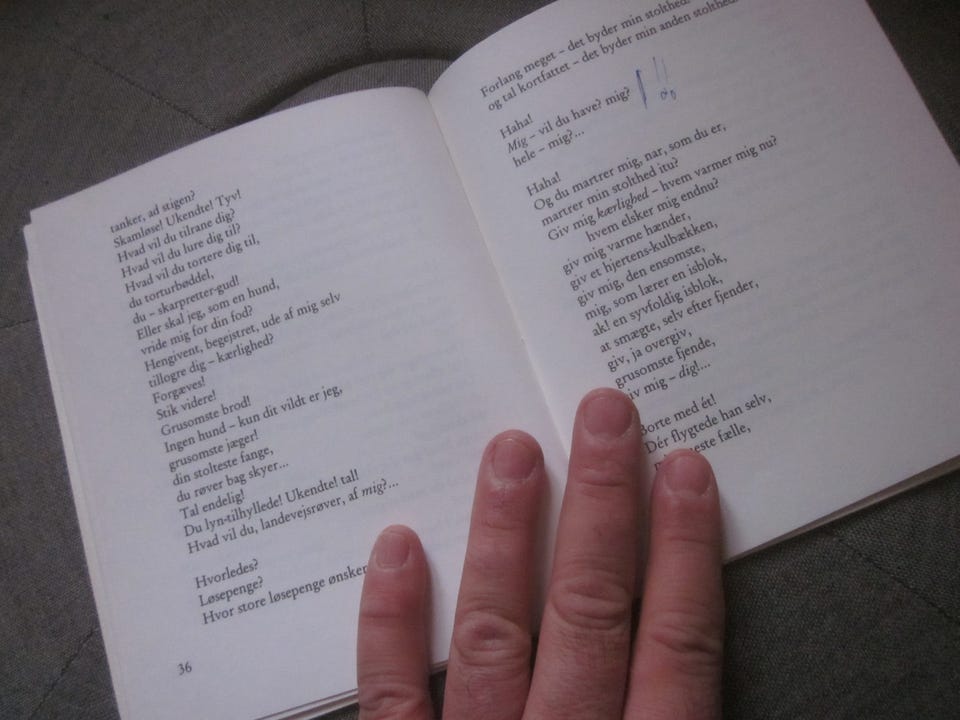 tanker, ad stigen?
Skamløse! Ukendte! Tyv!
Hvad vil du tilrane dig?
Hvad vil du lure dig til?
Hvad vil du tortere dig til,
du torturbøddel,
du – skarpretter-gud!
Eller skal jeg, som en hund,
vride mig for din fod?
Hengivent, begejstret, ude af mig selv
tillogre dig – kærlighed?
Forgæves!
Stik videre!
Grusomste brod!
Ingen hund – kun dit vildt er jeg,
grusomste jæger!
din stolteste fange,
du røver bag skyer...
Tal endelig!
Du lyn-tilhyllede! Ukendte! tal!
Hvad vil du, landevejsrøver, af mig?...
Hvorledes?
Løsepenge?
Hvor store løsepenge ønsker
36
Forlang meget – det byder min stolthed!
og tal kortfattet – det byder min anden stolthed!
Haha!
Mig – vil du have? mig?
hele – mig?...
Haha!
Og du martrer mig, nar, som du er,
martrer min stolthed itu?
Giv mig kærlighed – hvem varmer mig nu?
hvem elsker mig endnu?
giv mig varme hænder,
giv et hjertens-kulbækken,
giv mig, den ensomste,
mig, som lærer en isblok,
ak! en syvfoldig isblok,
at smægte, selv efter fjender,
giv, ja overgiv,
grusomste fjende,
giv mig – dig!...
Borte med ét!
Dér flygtede han selv,
fælle,